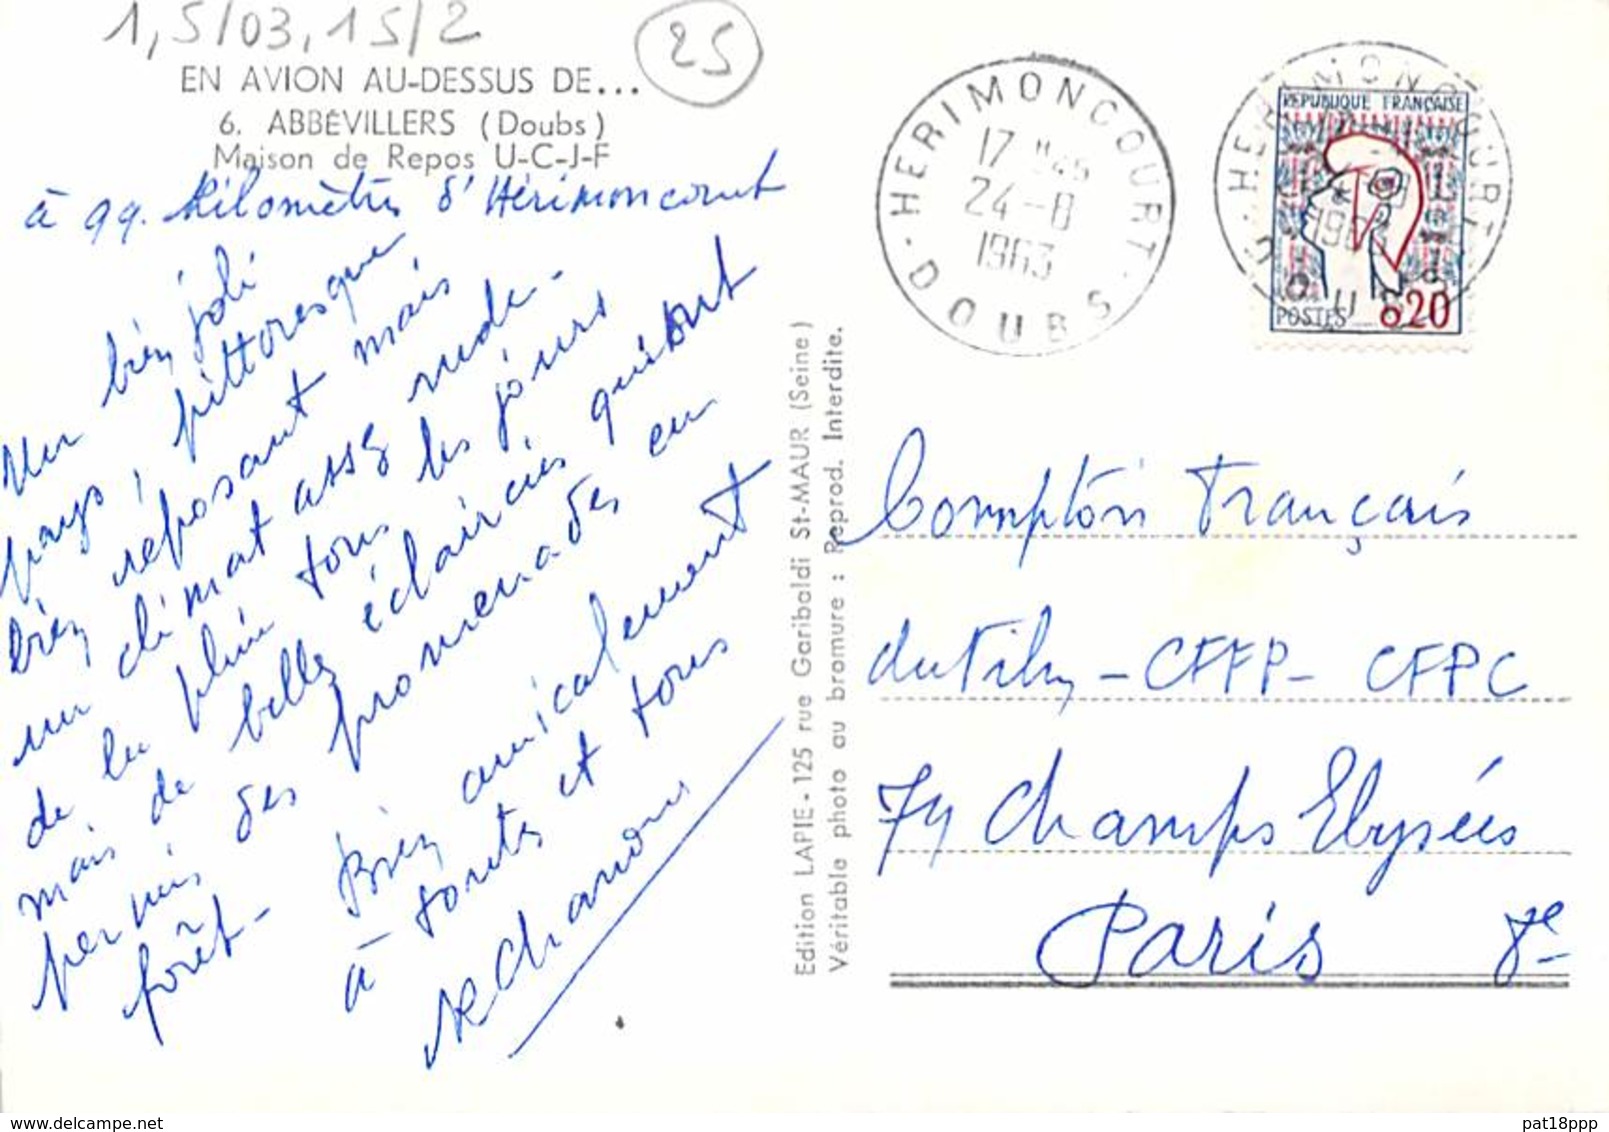 1,5/03,15/2
25
EN AVION AU-DESSUS DE...
6. ABBÉVILLERS (Doubs)
Maison de Repos U-C-J-F
à 99. Kilomètres d'Hérimoncourt
Un bien joli
pays, pittoresque
bien reposant mais
un climat assez rude -
de la pluie tous les jours
mais de belles éclaircies qui ont
permis des promenades en
forêt -
Bien amicalement
à toutes et tous
Edition LAPIE - 125 rue Garibaldi St-MAUR (Seine)
Véritable photo au bromure : Reprod. Interdite.
HERIMONCOURT
17 H45
24-8
1963
DOUBS
HERIMONCOURT
1963
DOUBS
REPUBLIQUE FRANÇAISE
POSTES 0,20
Comptoir Français
du Film - CFFP - CFPC
74 Champs Elysées
Paris 8e
delcampe.net
pat18ppp